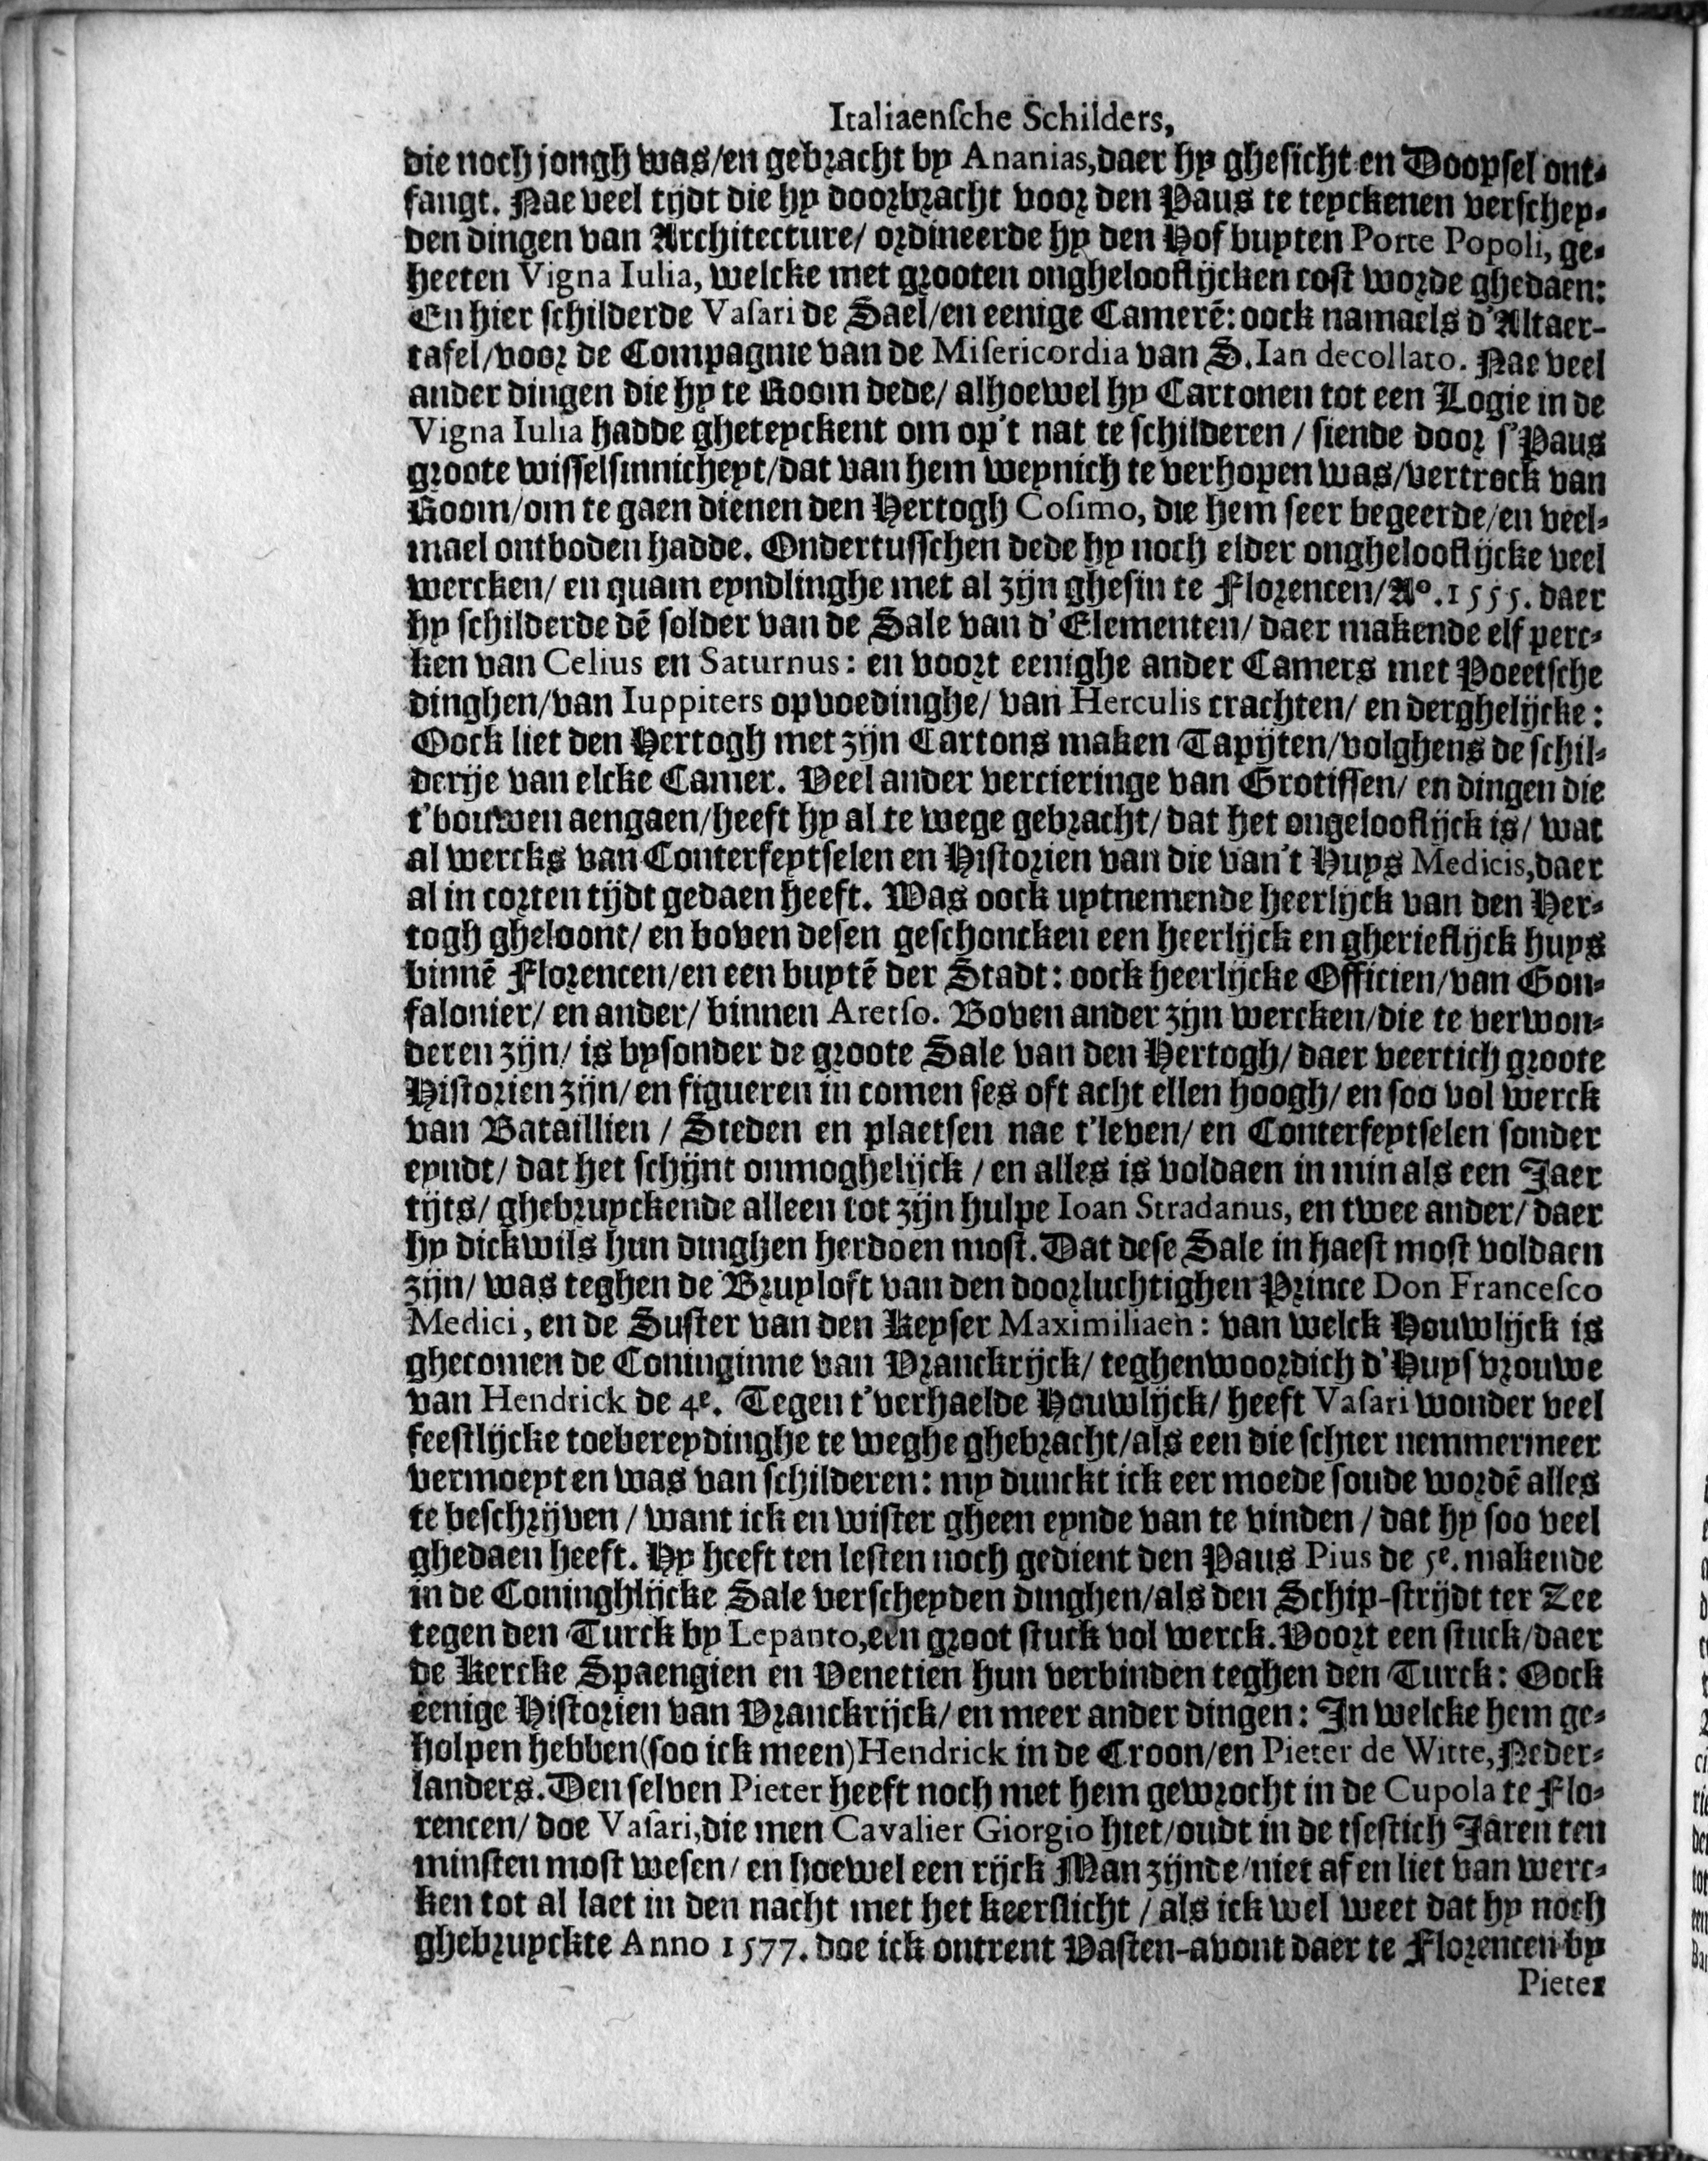 Italiaensche Schilders,
die noch jongh was/en gebracht by Ananias, daer hy ghesicht en Doopsel ont-
fangt. Nae veel tijdt die hy doorbracht voor den Paus te teyckenen verschey-
den dingen van Architecture/ ordineerde hy den Hof buyten Porte Popoli, ge-
heeten Vigna Iulia, welcke met grooten onghelooflijcken cost worde ghedaen:
En hier schilderde Vasari de Sael/en eenige Camerē: oock namaels d'Altaer-
tafel/voor de Compagnie van de Misericordia van S. Ian decollato. Nae veel
ander dingen die hy te Room dede/ alhoewel hy Cartonen tot een Logie in de
Vigna Iulia hadde gheteyckent om op't nat te schilderen / siende door s'Paus
groote wisselsinnicheyt/dat van hem weynich te verhopen was/vertrock van
Room/om te gaen dienen den Hertogh Cosimo, die hem seer begeerde/en veel-
mael ontboden hadde. Ondertusschen dede hy noch elder onghelooflijcke veel
wercken/ en quam eyndlinghe met al zijn ghesin te Florencen/Ao. 1555. daer
hy schilderde dē solder van de Sale van d'Elementen/ daer makende elf perc-
ken van Celius en Saturnus: en voort eenighe ander Camers met Poeetsche
dinghen/van Iuppiters opvoedinghe/ van Herculis crachten/ en derghelijcke:
Oock liet den Hertogh met zijn Cartons maken Tapijten/volghens de schil-
derije van elcke Camer. Veel ander vercieringe van Grotissen/ en dingen die
t'bouwen aengaen/heeft hy al te wege gebracht/ dat het ongelooflijck is/ wat
al wercks van Conterfeytselen en Historien van die van't Huys Medicis, daer
al in corten tijdt gedaen heeft. Was oock uytnemende heerlijck van den Her-
togh gheloont/ en boven desen geschoncken een heerlijck en gherieflijck huys
binnē Florencen/en een buytē der Stadt: oock heerlijcke Officien/van Gon-
falonier/ en ander/ binnen Aretso. Boven ander zijn wercken/die te verwon-
deren zijn/ is bysonder de groote Sale van den Hertogh/ daer veertich groote
Historien zijn/ en figueren in comen ses oft acht ellen hoogh/ en soo vol werck
van Bataillien / Steden en plaetsen nae t'leven/ en Conterfeytselen sonder
eyndt/ dat het schijnt onmoghelijck / en alles is voldaen in min als een Jaer
tijts/ ghebruyckende alleen tot zijn hulpe Ioan Stradanus, en twee ander/ daer
hy dickwils hun dinghen herdoen most. Dat dese Sale in haest most voldaen
zijn/ was teghen de Bruyloft van den doorluchtighen Prince Don Francesco
Medici, en de Suster van den Keyser Maximiliaen: van welck Houwlijck is
ghecomen de Coninginne van Vranckrijck/ teghenwoordich d'Huysvrouwe
van Hendrick de 4e. Tegen t'verhaelde Houwlijck/ heeft Vasari wonder veel
feestlijcke toebereydinghe te weghe ghebracht/als een die schier nemmermeer
vermoeyt en was van schilderen: my dunckt ick eer moede soude wordē alles
te beschrijven / want ick en wister gheen eynde van te vinden / dat hy soo veel
ghedaen heeft. Hy heeft ten lesten noch gedient den Paus Pius de 5e. makende
in de Coninghlijcke Sale verscheyden dinghen/als den Schip-strijdt ter Zee
tegen den Turck by Lepanto, een groot stuck vol werck. Voort een stuck/daer
de Kercke Spaengien en Venetien hun verbinden teghen den Turck: Oock
eenige Historien van Vranckrijck/ en meer ander dingen: In welcke hem ge-
holpen hebben (soo ick meen) Hendrick in de Croon/en Pieter de Witte, Neder-
landers. Den selven Pieter heeft noch met hem gewrocht in de Cupola te Flo-
rencen/ doe Vasari, die men Cavalier Giorgio hiet/oudt in de tsestich Jaren ten
minsten most wesen/ en hoewel een rijck Man zijnde/niet af en liet van werc-
ken tot al laet in den nacht met het keerslicht / als ick wel weet dat hy noch
ghebruyckte Anno 1577. doe ick ontrent Vasten-avont daer te Florencen by
Pieter